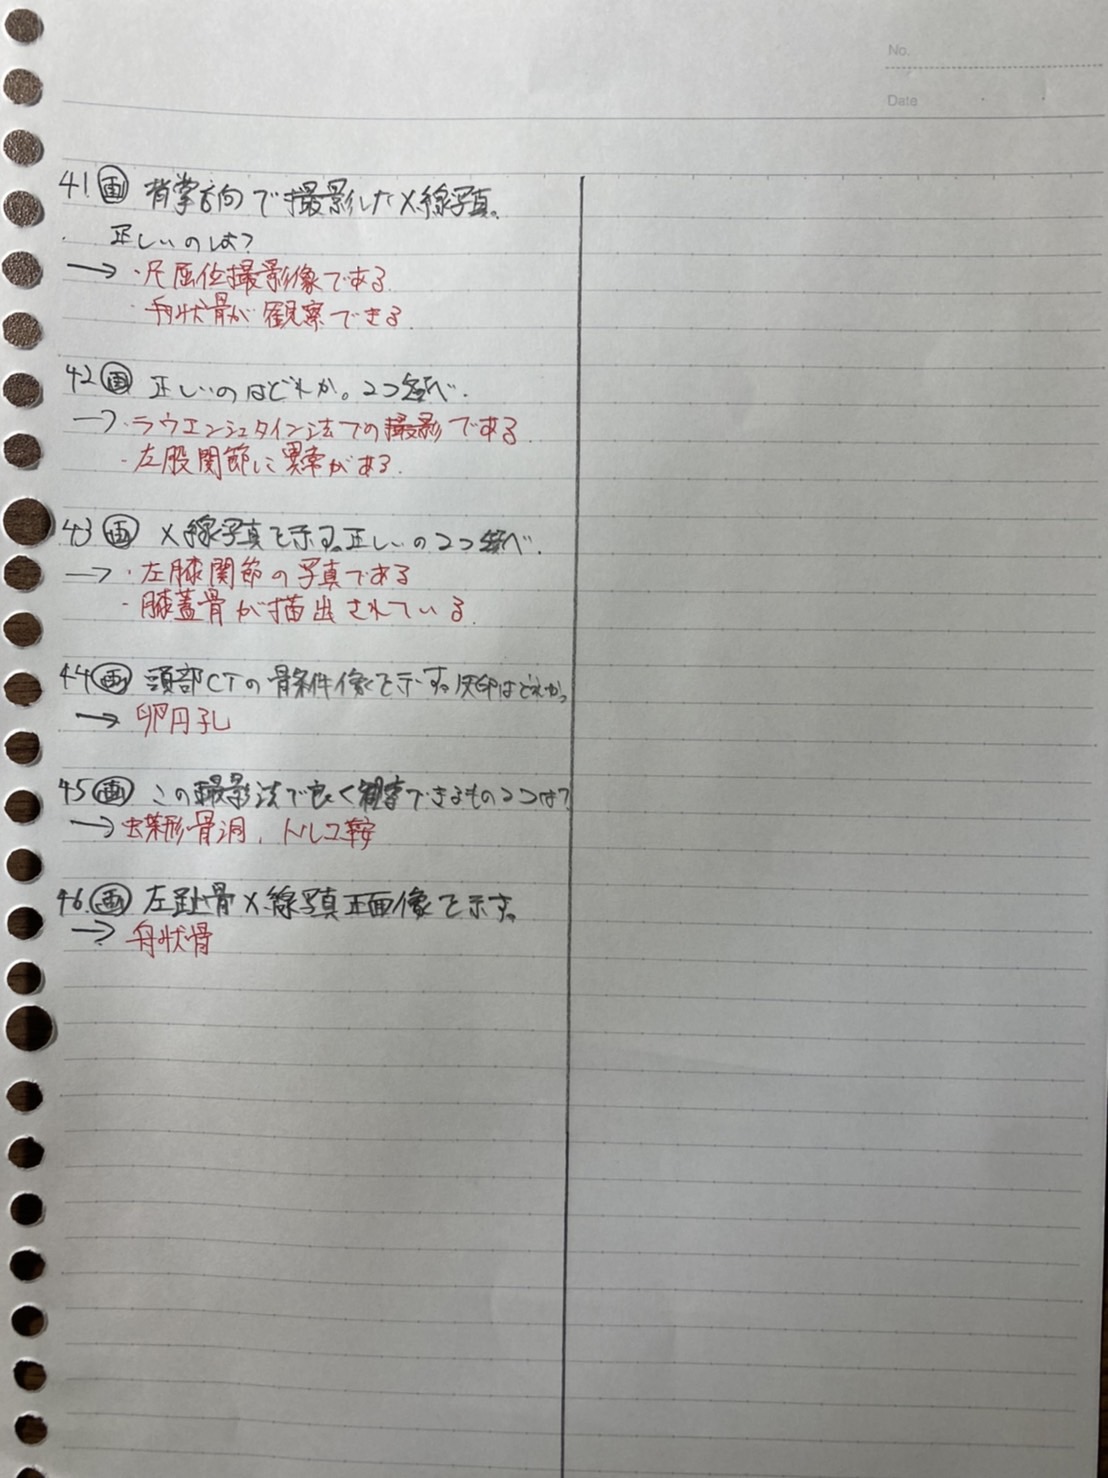 No.
Date
41 画 背掌方向で撮影したX線写真。
正しいのは?
→ ・尺屈位撮影像である.
・舟状骨が観察できる.
42 画 正しいのはどれか。2つ選べ.
→ ・ラウエンシュタイン法での撮影である.
・左股関節に異常がある.
43 画 X線写真を示す。正しいの2つ選べ.
→ ・左膝関節の写真である
・膝蓋骨が描出されている.
44 画 頭部CTの骨条件像を示す。矢印はどれか。
→ 卵円孔
45 画 この撮影法で良く観察できるもの2つは?
→ 蝶形骨洞, トルコ鞍
46. 画 左趾骨X線写真正面像を示す。
→ 舟状骨